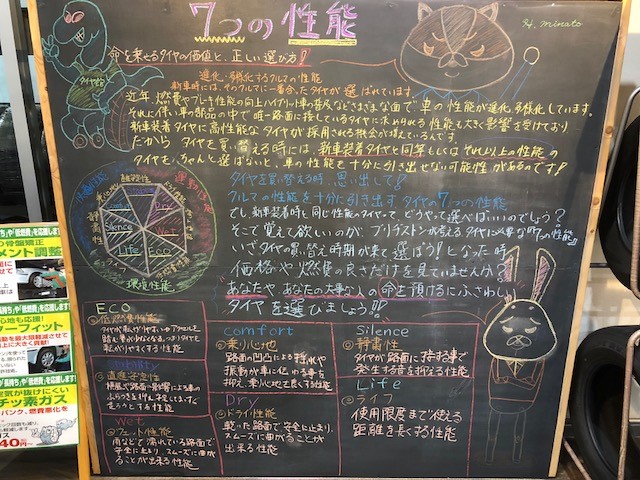 7つの性能
H. minato
命を乗せるタイヤの価値と、正しい選び方!!
タイヤ館
進化・多様化するクルマの性能
新車時には、そのクルマに一番合ったタイヤが選ばれています。
近年、燃費やブレーキ性能の向上、ハイブリッド車の普及などさまざまな面で車の性能が進化、多様化しています。
それに伴い車の部品の中で唯一路面に接しているタイヤに求められる性能も大きく影響を受けており
新車装着タイヤに高性能なタイヤが採用される機会が増えているんです。
だから タイヤを買い替える時には、新車装着タイヤと同等もしくはそれ以上の性能の
タイヤを、ちゃんと選ばないと、車の性能を十分に引き出せない可能性があるのです!
タイヤを買い替える時、思い出して!
クルマの性能を十分に引き出す タイヤの7つの性能
でも、新車装着時と同じ性能のタイヤって、どうやって選べばいいのでしょう?
そこで覚えて欲しいのが、ブリヂストンが考えるタイヤに必要な『7つの性能』!!
いざタイヤの買い替え時期が来て選ぼう!となった時
価格や燃費の良さだけを見ていませんか?
あなたや あなたの大事な人の命を預けるにふさわしい
タイヤを選びましょう!!
運動性能
快適性能
環境性能
静粛性
Silence
Dry
Wet
Eco
Life
ライフ
ECO
◎低燃費性能
タイヤが転がりやすい
転がりやすくする性能
◎直進安定性
横風で路面の影響による車の
ふらつきを抑え、安定してまっすぐ
走ろうとする性能
Wet
◎ウェット性能
雨などで濡れている路面で
安全に止まり、スムーズに曲がる
ことが出来る性能
comfort
◎乗り心地
路面の凹凸による揺れや
振動が車に伝わる事を
抑え、乗り心地を良くする性能
Dry
◎ドライ性能
乾いた路面で安全に止まり、
スムーズに曲がることが
出来る性能
Silence
◎静粛性
タイヤが路面に接する事で
発生する音を抑える性能
Life
◎ライフ
使用限度まで使える
距離を長くする性能
の骨盤矯正
メント調整
心地も応援!
ーフィット
空気が抜けにくい
チッ素ガス
パンク、燃費悪化を
40円~